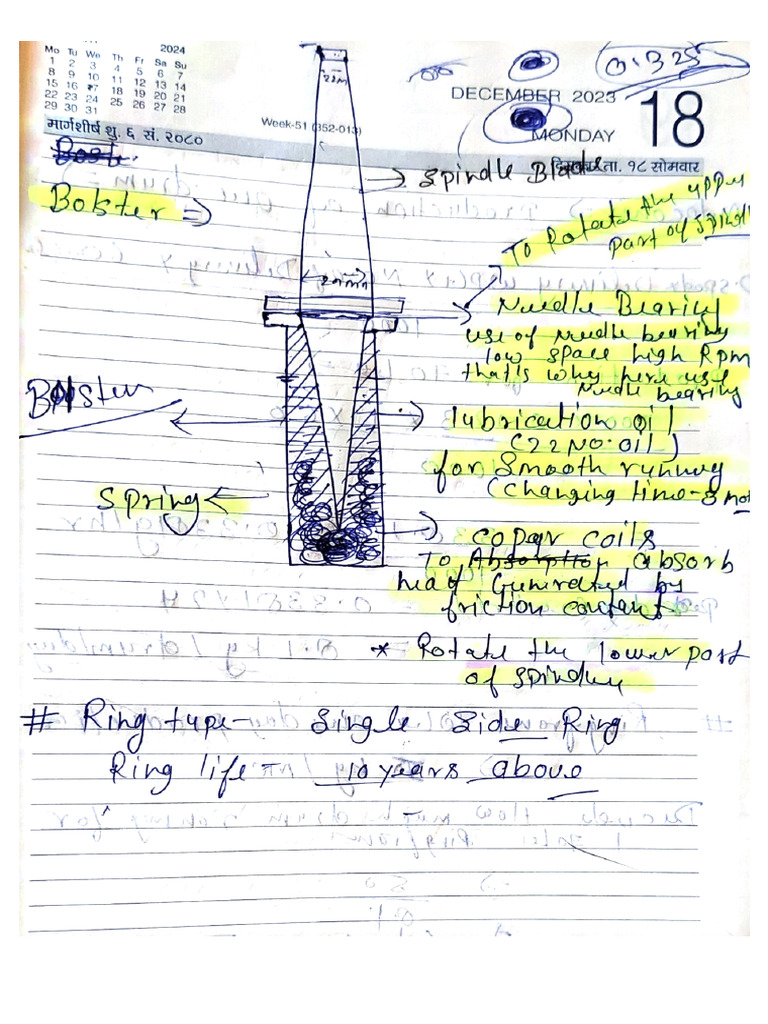 2024
Mo Tu We Th Fr Sa Su
1 2 3 4 5 6 7
8 9 10 11 12 13 14
15 16 17 18 19 20 21
22 23 24 25 26 27 28
29 30 31
मार्गशीर्ष शु. ६ सं. २०८०
Week-51 (352-013)
0.325
DECEMBER 2023
18
MONDAY
ता. १८ सोमवार
Bolster ⇒
22M
Spindle Blade
To Rotate the upper
part of
Needle Bearing
use of Needle bearing
low space high Rpm
that's why here use
Needle bearing
Bolster
lubrication oil
(22 No. oil)
for Smooth running
(changing time - 8
Spring
copar coils
To absorb
Genirated by
friction
* Rotate the lower part
of
# Ring tupe - Single Side Ring
Ring life = 10 years above